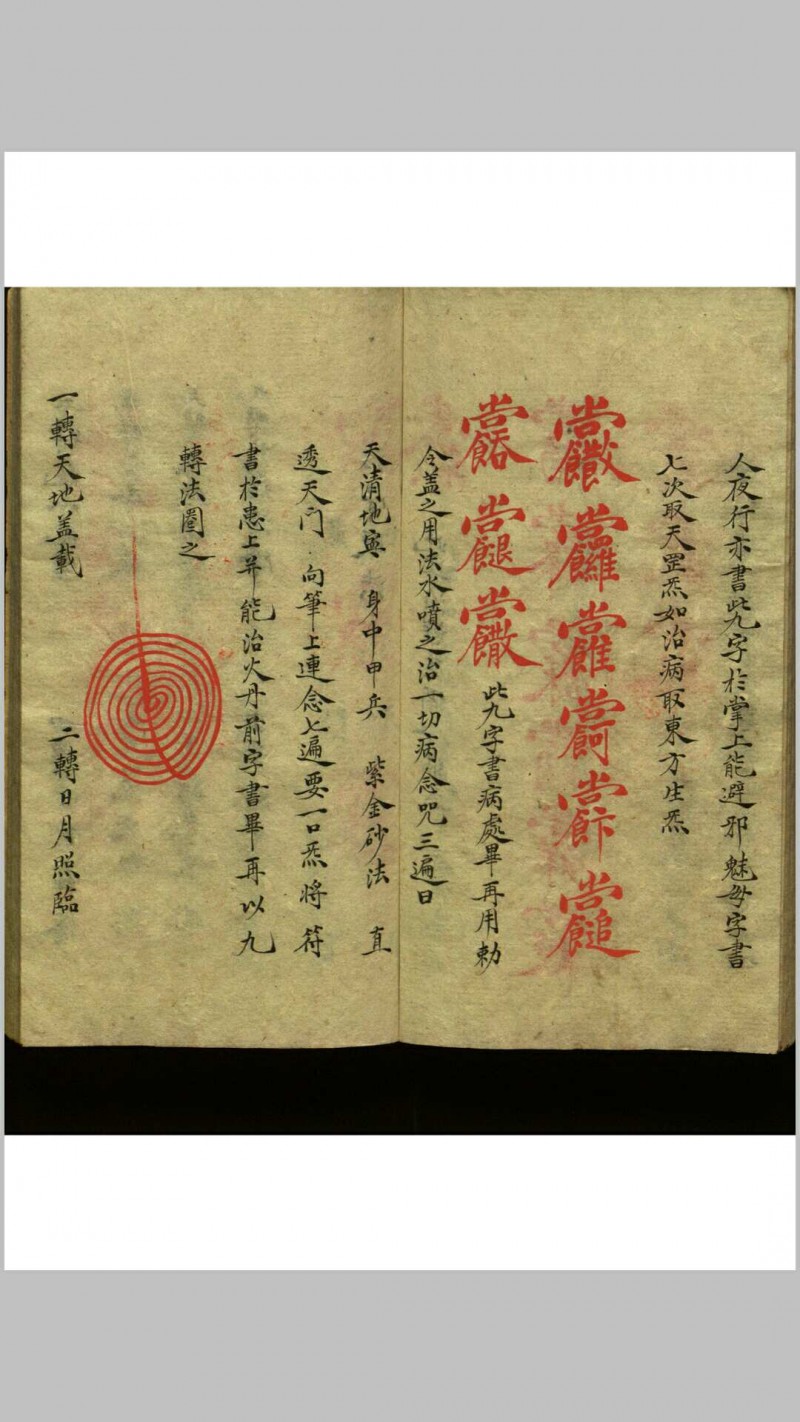 人夜行亦書此九字於掌上能避邪魅每字書
七次取天罡炁如治病取東方生炁
此九字書病處畢再用勅
令盖之用法水噴之治一切病念咒三遍曰
天清地寧 身中甲兵 紫金砂法 直
透天门 向筆上連念七遍要一口炁將符
書於患上并能治火丹前字書畢再以九
轉法圈之
一轉天地盖載 二轉日月照臨